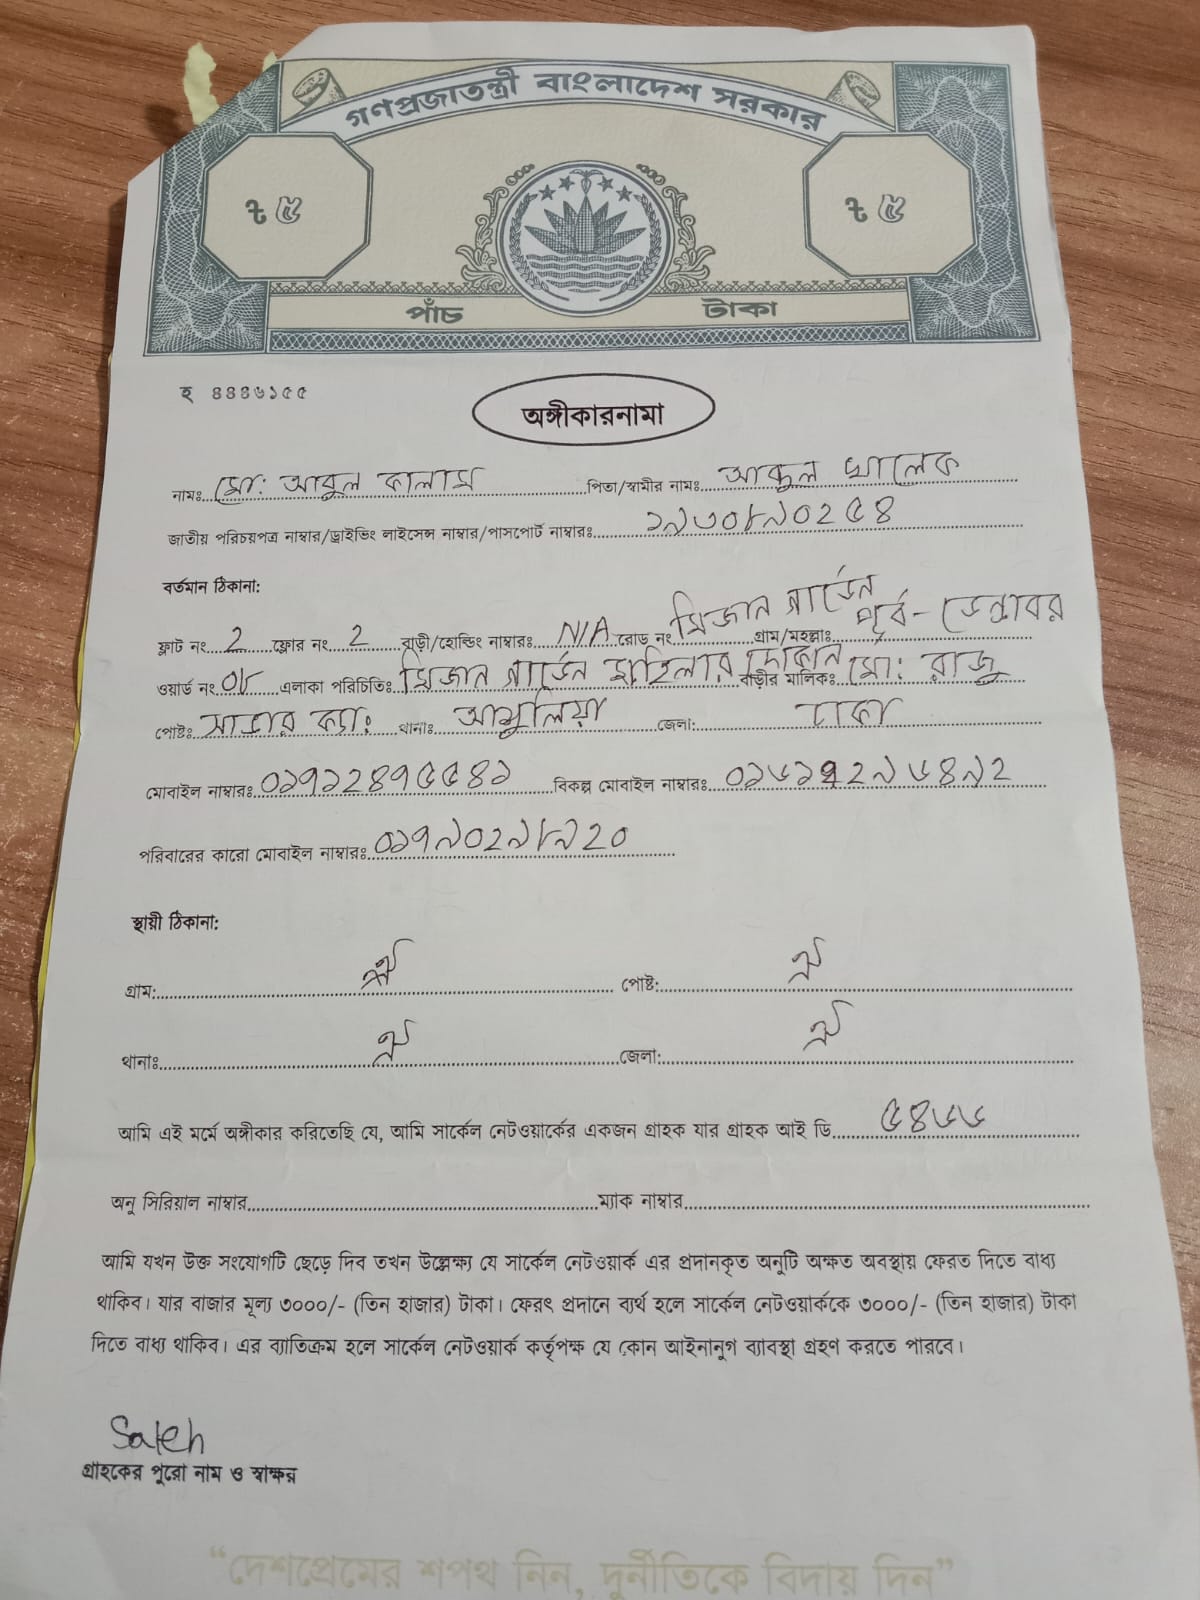 গণপ্রজাতন্ত্রী বাংলাদেশ সরকার
৳ ৫ ৳ ৫
পাঁচ টাকা
হ ৪৪৪৬১৫৫
অঙ্গীকারনামা
নামঃ মো: আবুল কালাম পিতা/স্বামীর নামঃ আব্দুল খালেক
জাতীয় পরিচয়পত্র নাম্বার/ড্রাইভিং লাইসেন্স নাম্বার/পাসপোর্ট নাম্বারঃ ১৯৩০৮৯০2৫৪
বর্তমান ঠিকানা:
ফ্লাট নং 2 ফ্লোর নং 2 বাড়ী/হোল্ডিং নাম্বারঃ N/A রোড নং মিজান গার্ডেন গ্রাম/মহল্লাঃ পূর্ব-ডেন্ডাবর
ওয়ার্ড নং ০৮ এলাকা পরিচিতিঃ মিজান গার্ডেন মহিলার দোকান বাড়ীর মালিকঃ মো: রাজু
পোষ্টঃ সাভার ক্যাঃ থানাঃ আশুলিয়া জেলা: ঢাকা
মোবাইল নাম্বারঃ ০১৭১2৪৭৫৫৪১ বিকল্প মোবাইল নাম্বারঃ
পরিবারের কারো মোবাইল নাম্বারঃ ০১৭৯০2৯৮৯2০
স্থায়ী ঠিকানা:
গ্রাম: ঐ পোষ্ট: ঐ
থানাঃ ঐ জেলা: ঐ
আমি এই মর্মে অঙ্গীকার করিতেছি যে, আমি সার্কেল নেটওয়ার্কের একজন গ্রাহক যার গ্রাহক আই ডি ৫৪৬৬
অনু সিরিয়াল নাম্বার ম্যাক নাম্বার
আমি যখন উক্ত সংযোগটি ছেড়ে দিব তখন উল্লেক্ষ্য যে সার্কেল নেটওয়ার্ক এর প্রদানকৃত অনুটি অক্ষত অবস্থায় ফেরত দিতে বাধ্য
থাকিব। যার বাজার মূল্য ৩০০০/- (তিন হাজার) টাকা। ফেরৎ প্রদানে ব্যর্থ হলে সার্কেল নেটওয়ার্ককে ৩০০০/- (তিন হাজার) টাকা
দিতে বাধ্য থাকিব। এর ব্যাতিক্রম হলে সার্কেল নেটওয়ার্ক কর্তৃপক্ষ যে কোন আইনানুগ ব্যাবস্থা গ্রহণ করতে পারবে।
Saleh
গ্রাহকের পুরো নাম ও স্বাক্ষর
“দেশপ্রেমের শপথ নিন, দুর্নীতিকে বিদায় দিন”